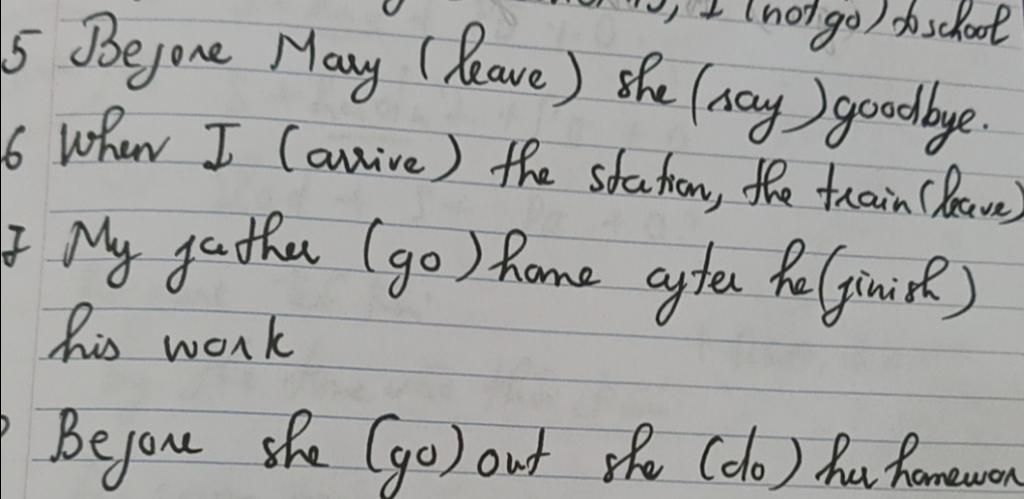 I (not go) to school
5 Before Mary (leave) she (say) goodbye.
6 When I (arrive) the station, the train (leave)
7 My father (go) home after he (finish)
his work
Before she (go) out she (do) her homewor